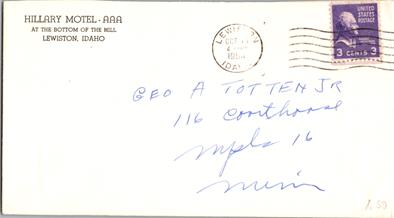 HILLARY MOTEL - AAA
AT THE BOTTOM OF THE HILL
LEWISTON, IDAHO
LEWISTON
OCT
1954
IDAHO
UNITED STATES POSTAGE
3 CENTS 3
GEO A TOTTEN JR
116 Courthouse
Mpls 16
Minn
1.50